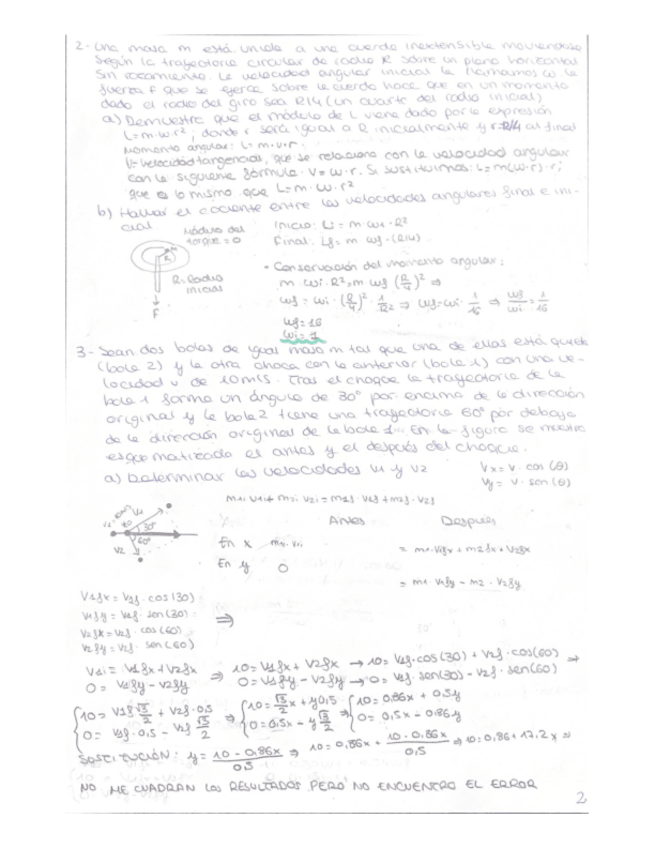 2- Una masa m está unida a una cuerda inextensible moviendose
según la trayectoria circular de radio R sobre un plano horizontal
sin rozamiento. La velocidad angular inicial la llamamos ω. La
fuerza F que se ejerce sobre la cuerda hace que en un momento
dado el radio del giro sea R/4 (un cuarto del radio inicial)
a) Demuestre que el módulo de L viene dado por la expresión
L=m·ω·r², donde r será igual a R inicialmente y r=R/4 al final
Momento angular: L=m·v·r.
V=velocidad tangencial, que se relaciona con la velocidad angular
con la siguiente fórmula: V=ω·r. Si sustituimos: L=m(ω·r)·r;
que es lo mismo que L=m·ω·r²
b) Hallar el cociente entre las velocidades angulares final e ini-
cial
Módulo del
torque=0
Inicio: Li = m ωi·R²
Final: Lf = m ωf·(R/4)
R=Radio
inicial
F
• Conservación del momento angular:
m·ωi·R²=m ωf (R/4)² ⇒
ωf=ωi·(R/4)²·1/R² ⇒ ωf=ωi·1/16 ⇒ ωf/ωi=1/16
ωf=16
ωi=1
3- Sean dos bolas de igual masa m tal que una de ellas está quieta
(bola 2) y la otra choca con la anterior (bola 1) con una ve-
locidad v de 10m/s. Tras el choque la trayectoria de la
bola 1 forma un ángulo de 30º por encima de la dirección
original y la bola 2 tiene una trayectoria 60º por debajo
de la dirección original de la bola 1... En la figura se muestra
esquematizado el antes y el después del choque.
a) Determinar las velocidades V1 y V2
Vx=V·cos(θ)
Vy=V·sen(θ)
m1i·V1i+m2i·V2i=m1f·V1f+m2f·V2f
V1
30º
60º
V2
Antes Después
En x m1i·V1i = m1·V1fx+m2fx+V2fx
En y 0
= m1·V1fy-m2·V2fy
V1fx=V1f·cos(30)
V1fy=V1f·sen(30)
V2fx=V2f·cos(60)
V2fy=V2f·sen(60)
⇒
V1i=V1fx+V2fx ⇒ 10=V1fx+V2fx → 10=V1f·cos(30)+V2f·cos(60) ⇒
0=V1fy-V2fy 0=V1fy-V2fy → 0=V1f·sen(30)-V2f·sen(60)
10=V1f √3/2+V2f·0,5 ⇒ 10=√3/2 x+y0,5 ⇒ 10=0,86x+0,5y
0=V1f·0,5-V2f √3/2 0=0,5x-y √3/2 0=0,5x-0,86y
SUSTITUCIÓN: y=10-0,86x/0,5 ⇒ 10=0,86x+10-0,86x/0,5 ⇒ 10=0,86+17,2x ⇒
NO ME CUADRAN LOS RESULTADOS PERO NO ENCUENTRO EL ERROR
2